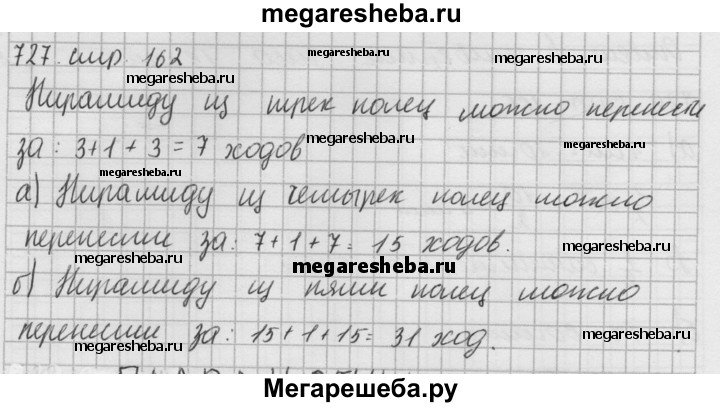 megaresheba.ru
727 стр. 162
megaresheba.ru
megaresheba.ru
megaresheba.ru
Пирамиду из трех колец можно перенести
за: 3+1+3=7 ходов
megaresheba.ru
megaresheba.ru
megaresheba.ru
а) Пирамиду из четырех колец можно
перенести за: 7+1+7=15 ходов.
megaresheba.ru
megaresheba.ru
б) Пирамиду из пяти колец можно
перенести за: 15+1+15=31 ход.
megaresheba.ru
megaresheba.ru
Мегарешеба.ру